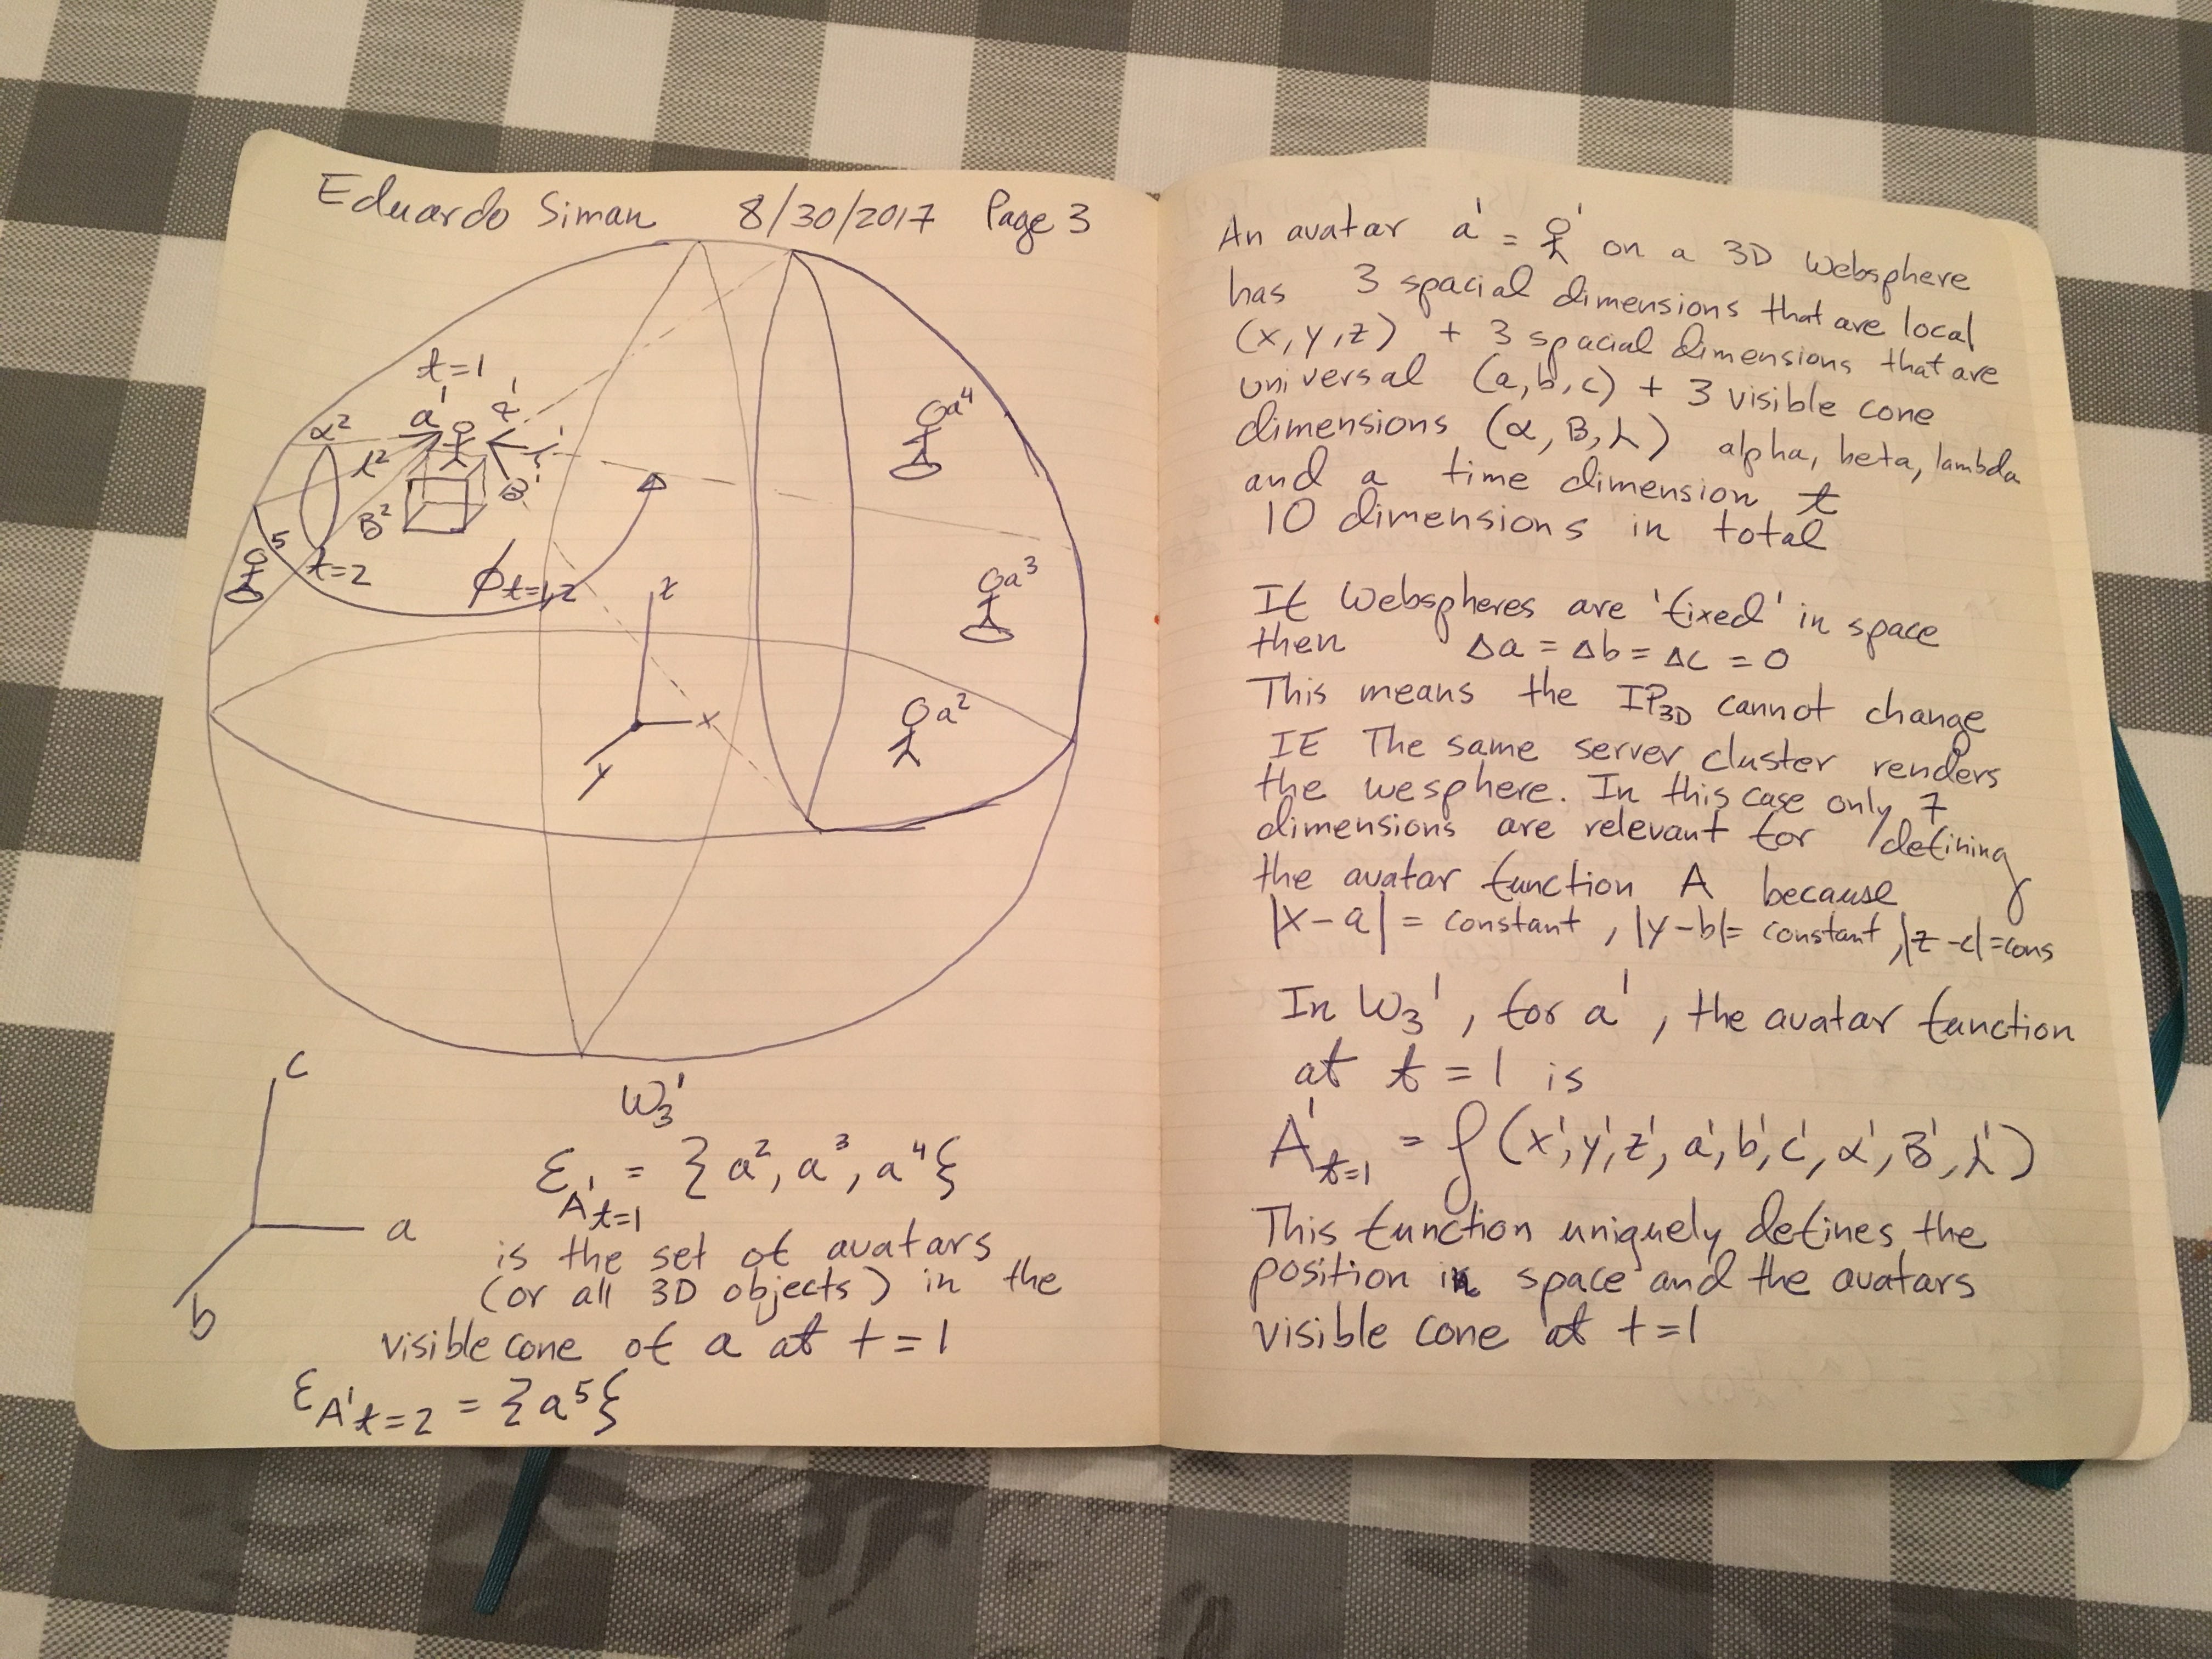 Eduardo Siman 8/30/2017 Page 3
t=1
a¹ α¹
α² λ¹
λ² B¹
B²
5 t=2
ϕt=1,2
z
x
y
a⁴
a³
a²
W₃¹
c
a
b
ε A¹t=1 = {a², a³, a⁴}
is the set of avatars
(or all 3D objects) in the
visible cone of a at t=1
ε A¹t=2 = {a⁵}
An avatar a¹ = ¹ on a 3D Websphere
has 3 spacial dimensions that are local
(x,y,z) + 3 spacial dimensions that are
universal (a,b,c) + 3 visible cone
dimensions (α, B, λ) alpha, beta, lambda
and a time dimension t
10 dimensions in total
If Webspheres are 'fixed' in space
then Δa = Δb = Δc = 0
This means the IP3D cannot change
IE The same server cluster renders
the wesphere. In this case only 7
dimensions are relevant for defining
the avatar function A because
|x-a| = constant, |y-b|= constant, |z-c|=cons
In W₃¹, for a¹, the avatar function
at t=1 is
A¹t=1 = f(x¹,y¹,z¹,a¹,b¹,c¹,α¹,B¹,λ¹)
This function uniquely defines the
position in space and the avatars
visible cone at t=1